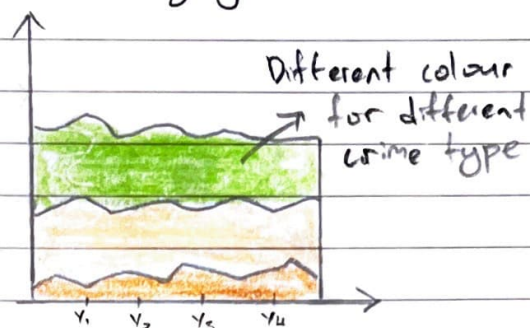 Different colour
for different
crime type
Y₁ Y₂ Y₃ Y₄